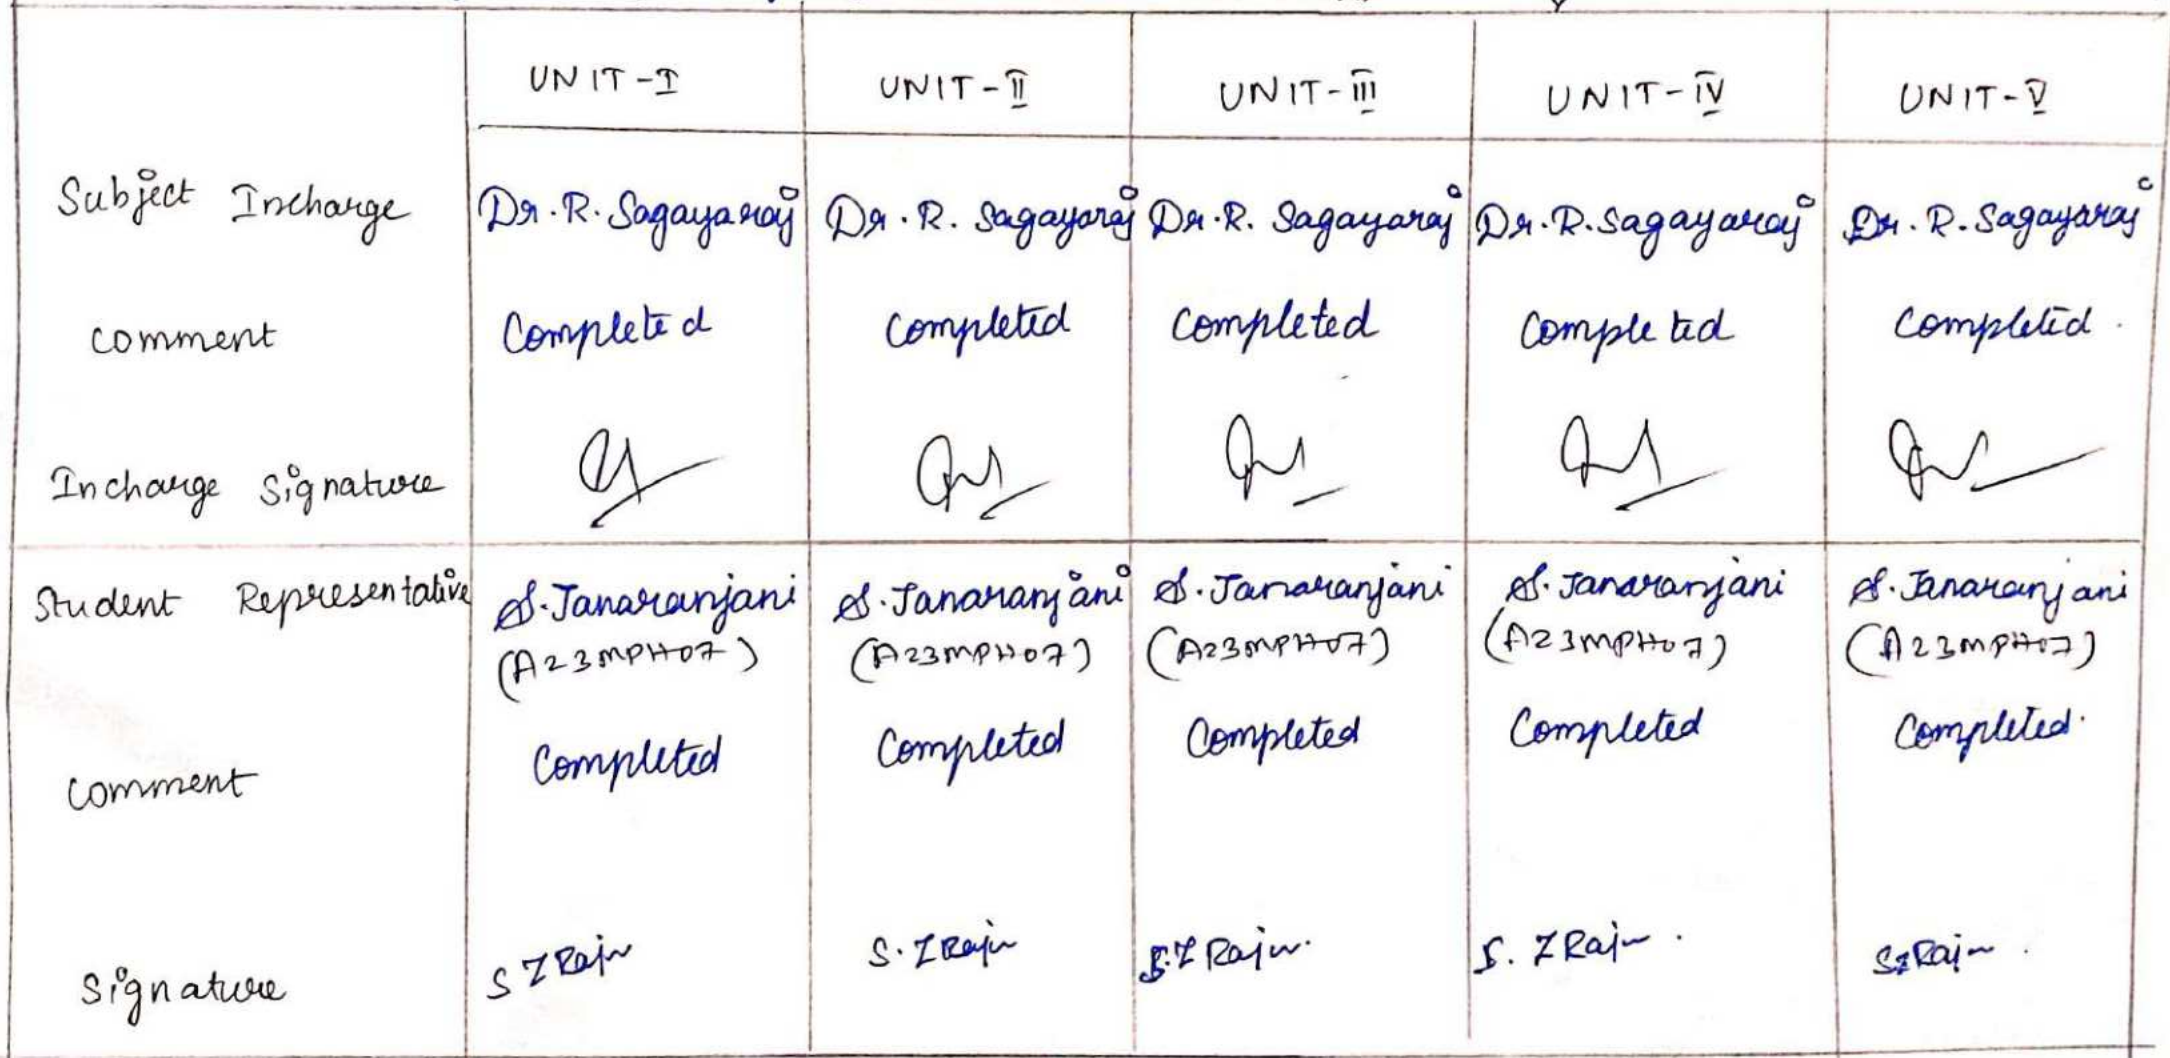 UNIT-I UNIT-II UNIT-III UNIT-IV UNIT-V
Subject Incharge Dr. R. Sagayaraj Dr. R. Sagayaraj Dr. R. Sagayaraj Dr. R. Sagayaraj Dr. R. Sagayaraj
comment Completed Completed Completed Completed Completed.
Incharge Signature
Student Representative S. Janaranjani S. Janaranjani S. Janaranjani S. Janaranjani S. Janaranjani
(A23MPH07) (A23MPH07) (A23MPH07) (A23MPH07) (A23MPH07)
comment Completed Completed Completed Completed Completed.
Signature